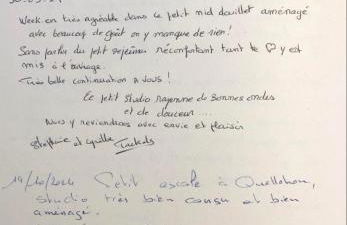 Week en très agréable dans ce petit nid douillet aménagé
avec beaucoup de goût on y manque de rien!
Sans parler du petit déjeuner réconfortant tant le ♡ y est
mis à l'ouvrage.
Très belle continuation à vous!
Ce petit studio rayonne de bonnes ondes
et de douceur....
Nous y reviendrons avec envie et plaisir
Stéphanie et
14/10/2024 Petit escale à
studio très bien conçu et bien
aménagé.